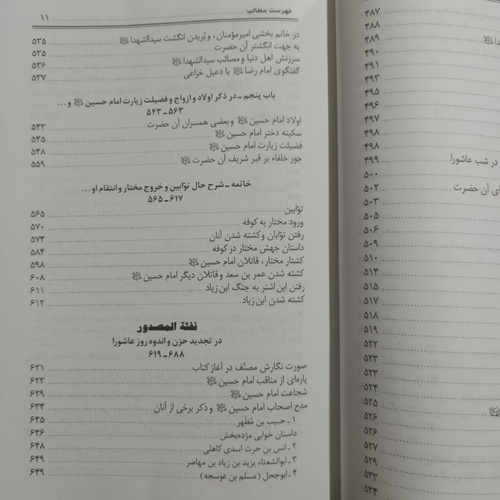 فهرست مطالب
۱۱
در خاتم بخشی امیرمؤمنان، و بُریدن انگشت سیدالشهدا ﷺ
به جهت انگشتر آن حضرت ۵۳۵
سرزنش اهل دنیا و مصائب سیدالشهدا ﷺ ۵۳۶
گفتگوی امام رضا ﷺ با دعبل خزاعی ۵۳۷
باب پنجم ـ در ذکر اولاد و ازواج و فضیلت زیارت امام حسین ﷺ و...
۵۶۳ـ۵۴۳
اولاد امام حسین ﷺ و بعضی همسران آن حضرت ۵۴۳
سکینه دختر امام حسین ﷺ ۵۴۵
فضیلت زیارت امام حسین ﷺ ۵۴۸
جور خلفاء بر قبر شریف آن حضرت ﷺ ۵۵۹
خاتمه ـ شرح حال توّابین و خروج مختار و انتقام او...
۶۱۷ـ۵۶۵
توّابین ۵۶۵
ورود مختار به کوفه ۵۷۰
رفتن توّابان و کشته شدن آنان ۵۷۴
داستان جهش مختار در کوفه ۵۸۴
کشتار مختار، قاتلان امام حسین ﷺ ۵۹۸
کشته شدن عمر بن سعد و قاتلان دیگر امام حسین ﷺ ۶۰۸
رفتن ابن اشتر به جنگ ابن زیاد ۶۱۱
کشته شدن ابن زیاد ۶۱۲
نفثة المصدور
در تجدید حزن و اندوه روز عاشورا
۶۸۸ـ۶۱۹
صورت نگارش مصنّف در آغاز کتاب ۶۲۱
پاره‌ای از مناقب امام حسین ﷺ ۶۲۳
شجاعت امام حسین ﷺ ۶۲۹
مدح اصحاب امام حسین ﷺ و ذکر برخی از آنان ۶۳۴
۱ـ حبیب بن مُظهر ۶۴۵
داستان خوابی مژده‌بخش
۲ـ انس بن حرث اسدی کاهلی ۶۴۸
۳ـ ابوالشعثاء یزید بن زیاد بن مهاصر ۶۴۹
۴ـ ابوجحل (مسلم بن عوسجه) ۶۴۹
۴۸۷
۴۸۸
۴۸۹
۴۹۰
۴۹۱
۴۹۳
۴۹۵
۴۹۶
۴۹۸
۴۹۸
۴۹۸
در شب عاشورا ۴۹۹
۵۰۰
ای آن حضرت ۵۰۲
۵۰۳
۵۰۵
۵۰۶
۵۰۹
۵۱۰
۵۱۴
۵۱۵
۵۱۷
۵۱۸
۵۱۹
۵۲۲
۵۲۳
۵۲۳
۵۲۴
۵۲۵
۵۲۶
۵۲۶
۵۲۷
۵۲۹
۵۳۳
۵۳۴